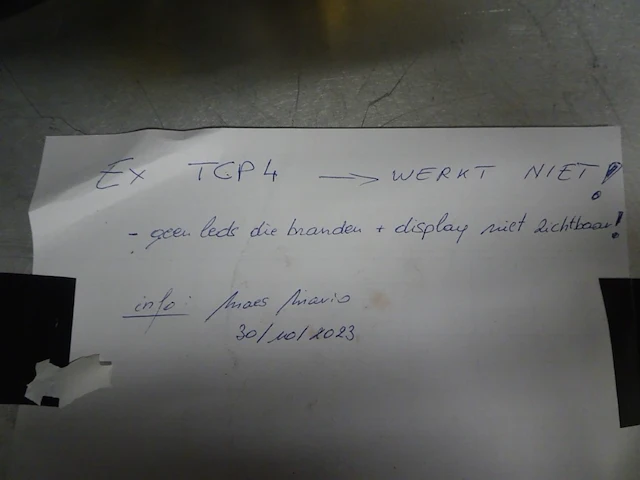 Ex TCP4 → WERKT NIET!
- geen leds die branden + display niet zichtbaar!
info: Maes Mario
30/10/2023